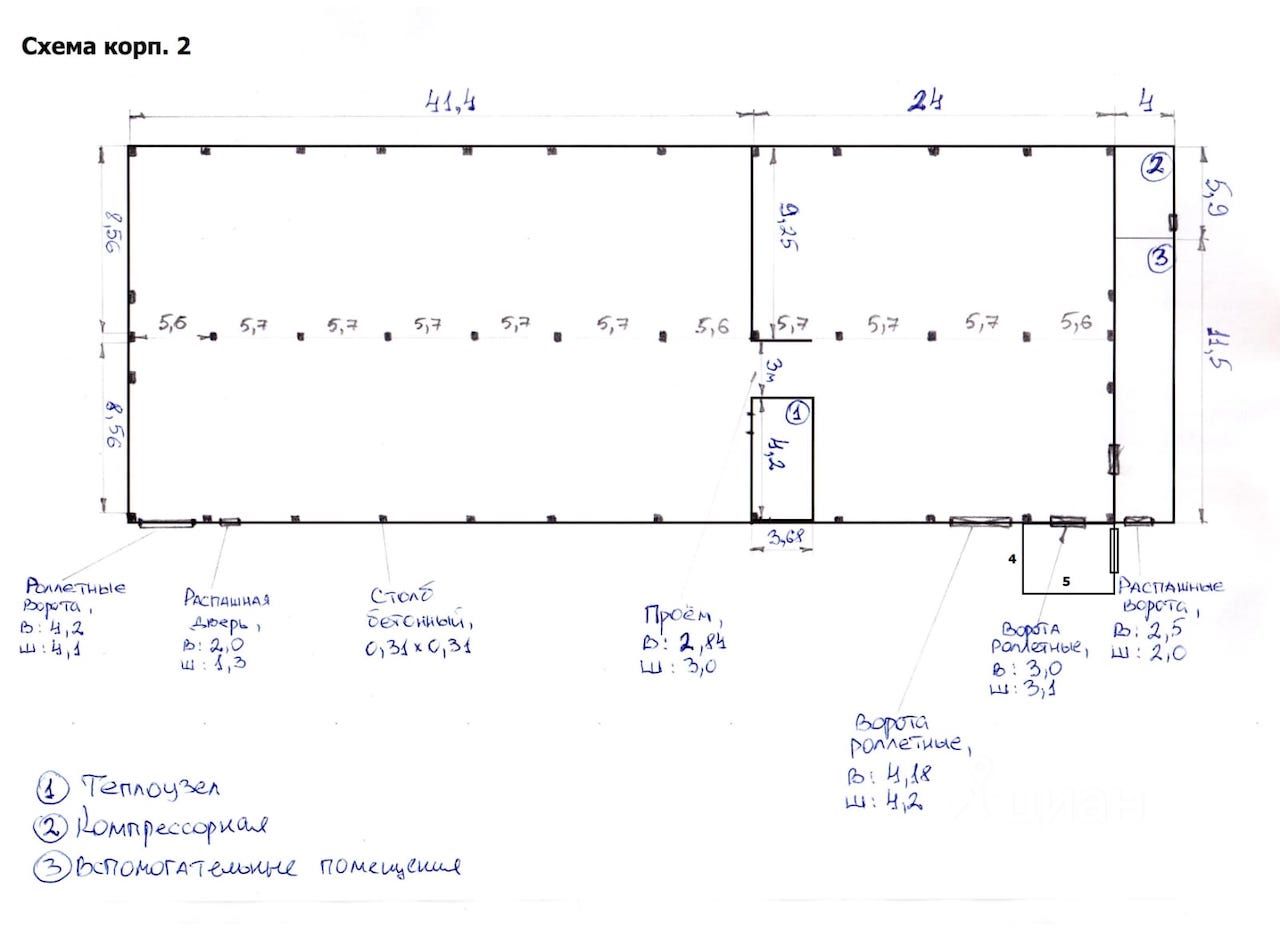 Схема корп. 2
41,4
24
4
8,56
9,25
2
5,9
3
5,6
5,7
5,7
5,7
5,7
5,7
5,6
5,7
5,7
5,7
5,6
11,5
3м
8,56
1
4,2
3,68
4
5
Роллетные
ворота,
В: 4,2
Ш: 4,1
Распашная
дверь,
В: 2,0
Ш: 1,3
Столб
бетонный,
0,31 x 0,31
Проём,
В: 2,84
Ш: 3,0
Ворота
роллетные,
В: 3,0
Ш: 3,1
Распашные
ворота,
В: 2,5
Ш: 2,0
Ворота
роллетные,
В: 4,18
Ш: 4,2
1 Теплоузел
2 Компрессорная
3 Вспомогательные помещения
циан